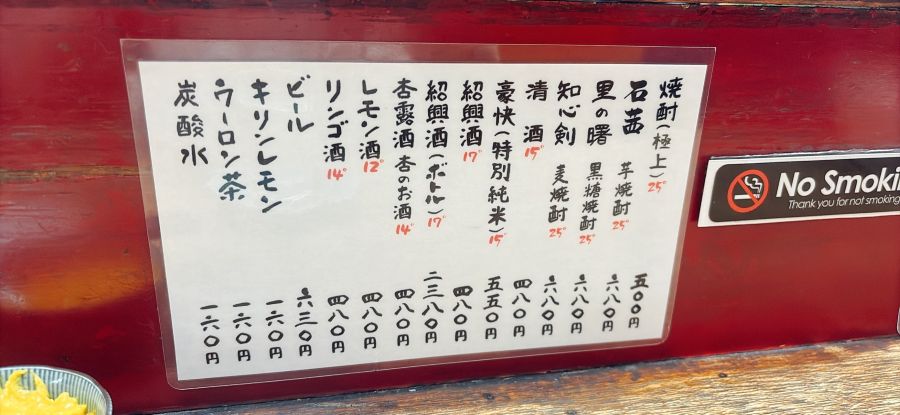 焼酎(極上)25° 五〇〇円
石茜 芋焼酎25° 六八〇円
里の曙 黒糖焼酎25° 六八〇円
知心剣 麦焼酎25° 六八〇円
清酒15° 四八〇円
豪快(特別純米)15° 五五〇円
紹興酒17° 四八〇円
紹興酒(ボトル)17° 二三八〇円
杏露酒 杏のお酒14° 四八〇円
レモン酒12° 四八〇円
リンゴ酒14° 四八〇円
ビール 六三〇円
キリンレモン 一六〇円
ウーロン茶 一六〇円
炭酸水 一六〇円
No Smoki
Thank you for not smoking